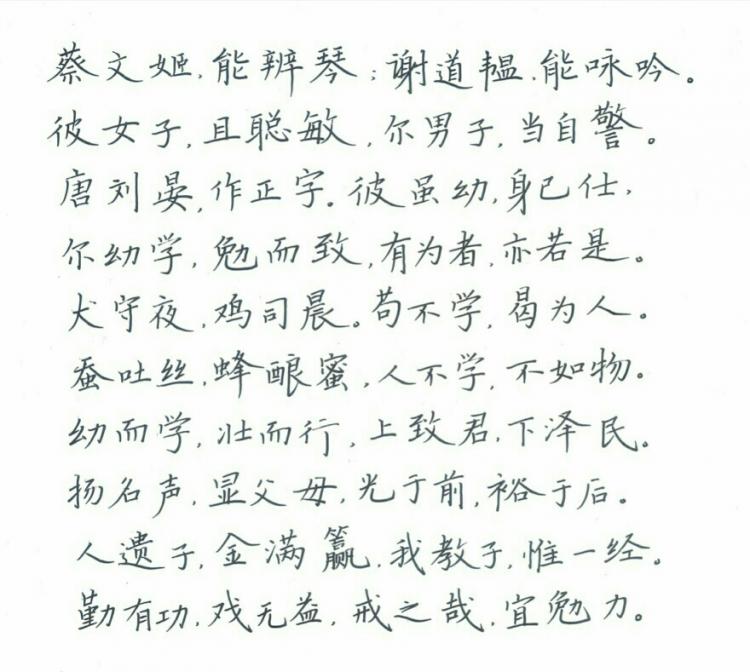 蔡文姬,能辨琴;谢道韫,能咏吟。
彼女子,且聪敏,尔男子,当自警。
唐刘晏,作正字。彼虽幼,身已仕,
尔幼学,勉而致,有为者,亦若是。
犬守夜,鸡司晨。苟不学,曷为人。
蚕吐丝,蜂酿蜜,人不学,不如物。
幼而学,壮而行,上致君,下泽民。
扬名声,显父母,光于前,裕于后。
人遗子,金满籯,我教子,惟一经。
勤有功,戏无益,戒之哉,宜勉力。